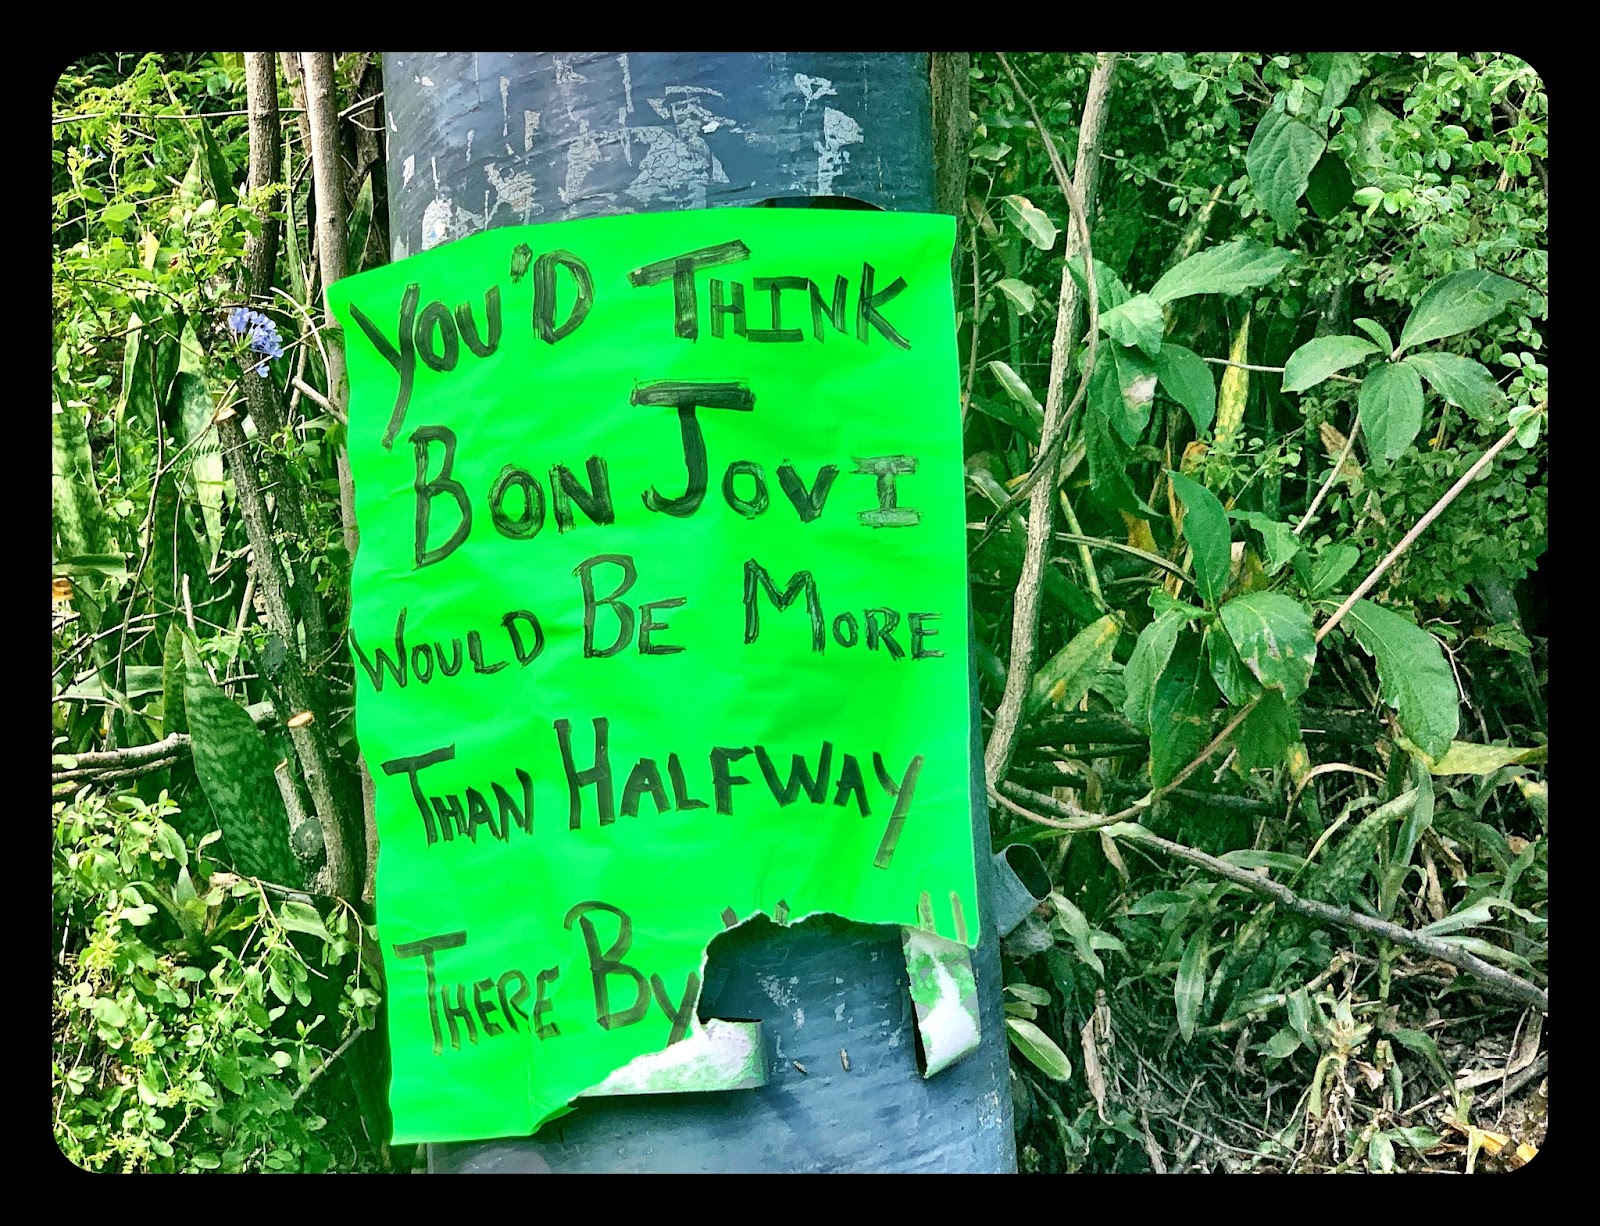 You'd Think
Bon Jovi
Would Be More
Than Halfway
There By